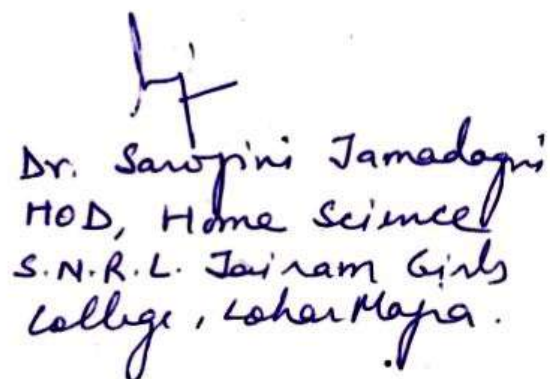 Dr. Sarojini Jamadagni
HOD, Home Science
S.N.R.L. Jairam Girls
College, Lohar Majra.